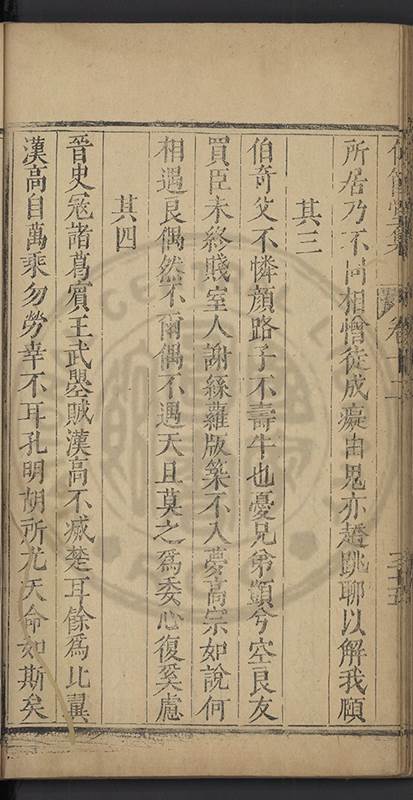 卷十二
三十五
所居乃不同相憎徒成癡由鬼亦趯跳聊以解我頤
其三
伯奇父不憐顏路子不壽牛也憂兄弟顥兮空良友
買臣未終賤室人謝絲蘿版築不入夢高宗如說何
相遇良偶然不爾偶不遇天且莫之為委心復奚慮
其四
晉史寇諸葛賓王武曌賊漢高不滅楚耳餘為比翼
漢高自萬乘勿勞幸不耳孔明胡所尤天命如斯矣